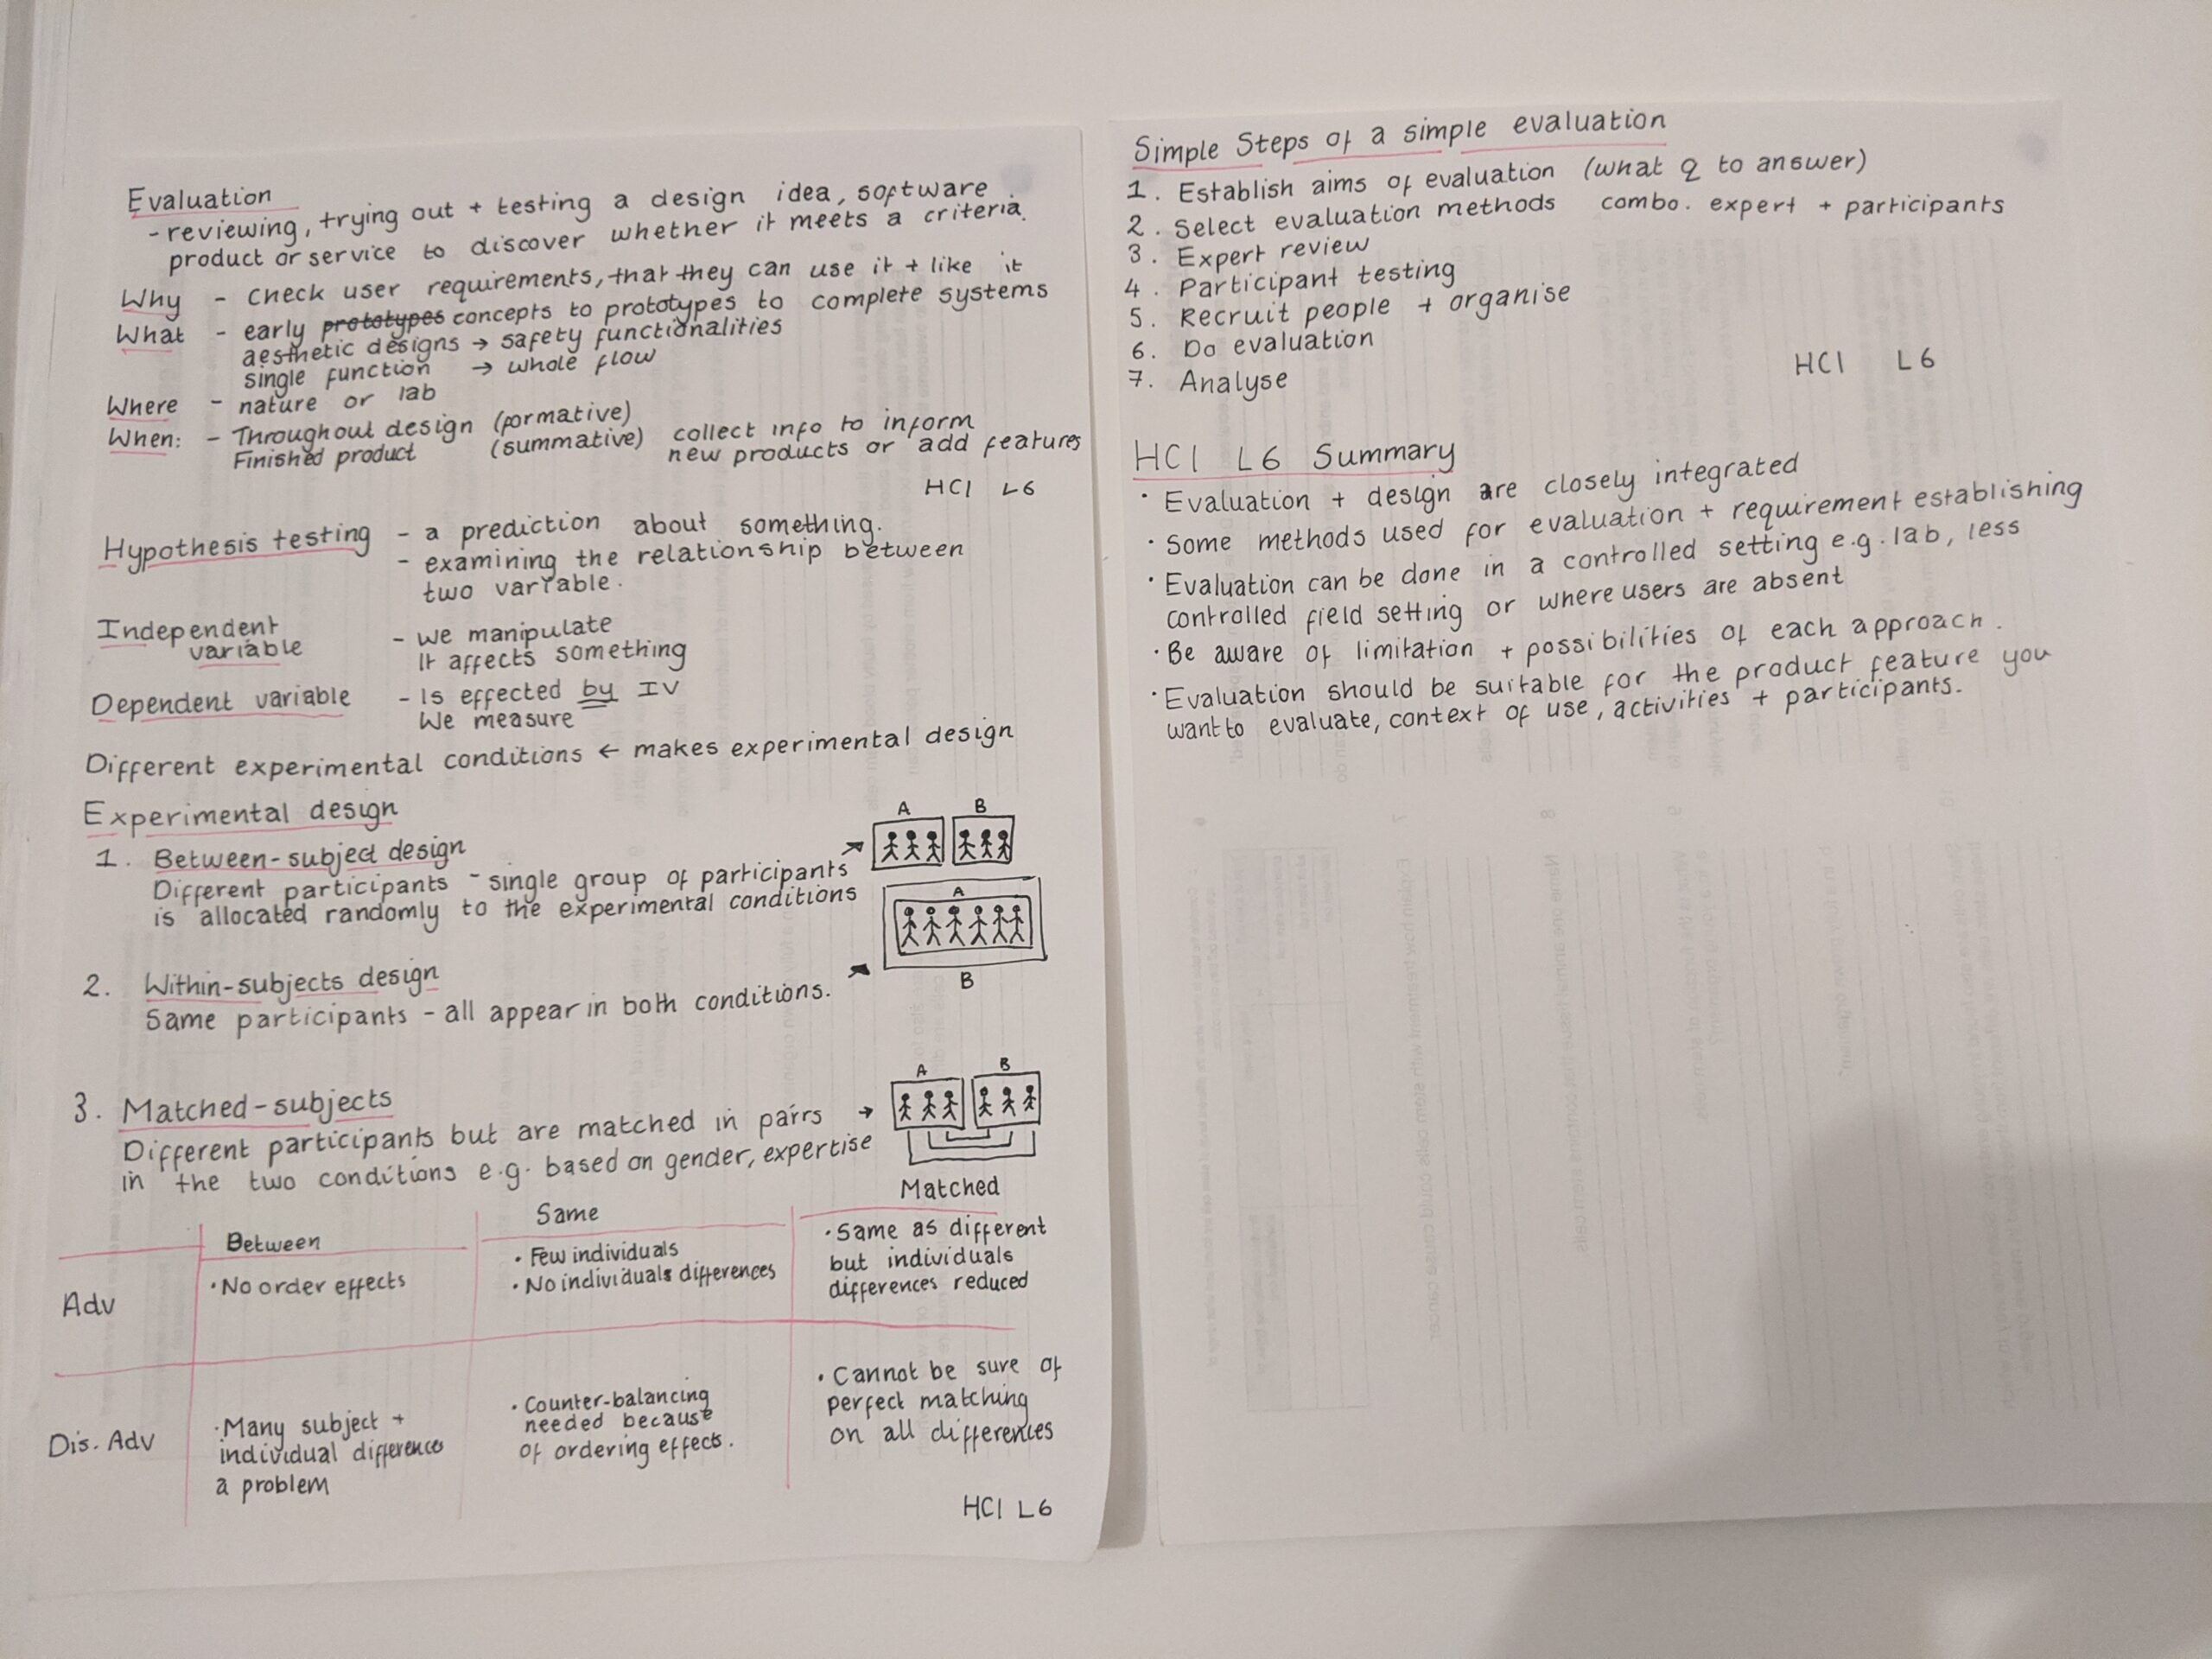 Evaluation
- reviewing, trying out + testing a design idea, software
product or service to discover whether it meets a criteria.
Why - Check user requirements, that they can use it + like it
What - early prototypes concepts to prototypes to complete systems
aesthetic designs → safety functionalities
single function → whole flow
Where - nature or lab
When: - Throughout design (formative)
Finished product (summative) collect info to inform
new products or add features
HCI L6
Hypothesis testing - a prediction about something.
- examining the relationship between
two variable.
Independent variable - we manipulate
It affects something
Dependent variable - Is effected by IV
We measure
Different experimental conditions ← makes experimental design
Experimental design
1. Between-subject design
Different participants - single group of participants
is allocated randomly to the experimental conditions
A B
A
B
2. Within-subjects design
Same participants - all appear in both conditions.
3. Matched-subjects
Different participants but are matched in pairs →
in the two conditions e.g. based on gender, expertise
A B
Between Same Matched
Adv
· No order effects
· Few individuals
· No individuals differences
· Same as different
but individuals
differences reduced
Dis. Adv
· Many subject +
individual differences
a problem
· Counter-balancing
needed because
of ordering effects.
· Cannot be sure of
perfect matching
on all differences
HCI L6
Simple Steps of a simple evaluation
1. Establish aims of evaluation (what Q to answer)
2. Select evaluation methods combo. expert + participants
3. Expert review
4. Participant testing
5. Recruit people + organise
6. Do evaluation
7. Analyse
HCI L6
HCI L6 Summary
· Evaluation + design are closely integrated
· Some methods used for evaluation + requirement establishing
· Evaluation can be done in a controlled setting e.g. lab, less
controlled field setting or where users are absent
· Be aware of limitation + possibilities of each approach.
· Evaluation should be suitable for the product feature you
want to evaluate, context of use, activities + participants.